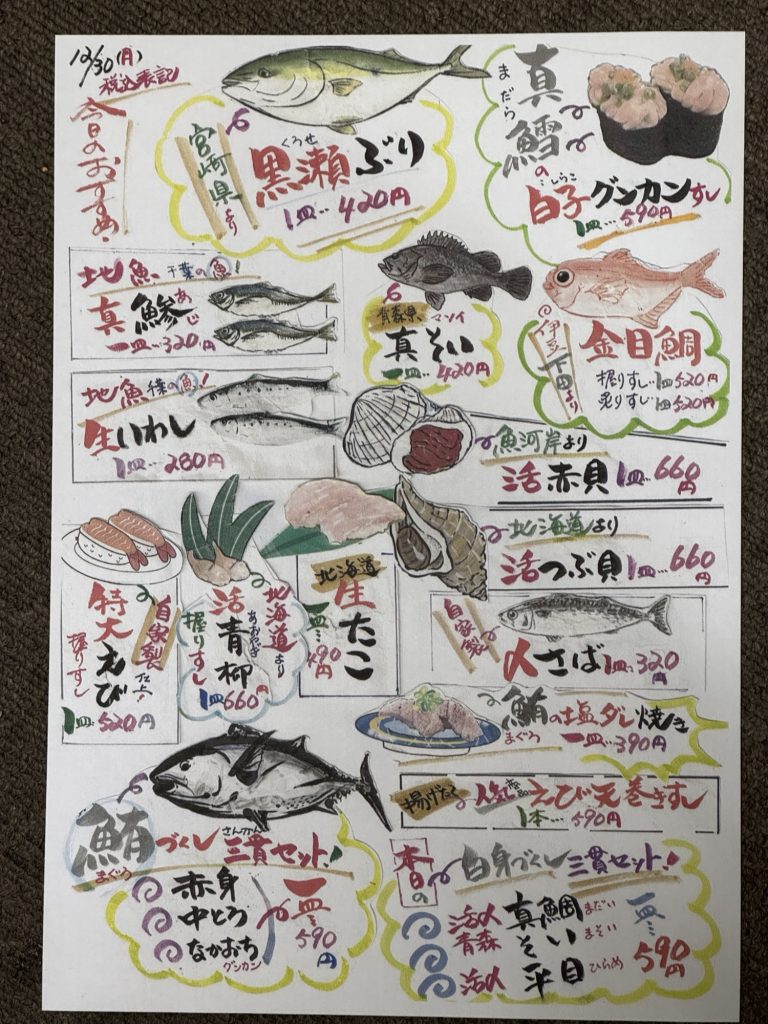 12/30(月)
税込表記
今日のおすすめ!
宮崎県より
くろせ
黒瀬ぶり
1皿…420円
まだら
真鱈の
しらこ
白子グンカンすし
1皿…590円
地魚 千葉の魚!
真鯵 あじ
一皿…320円
青森県 マソイ
真そい
一皿…420円
伊豆下田より
金目鯛
握りすし…1皿520円
炙りすし…1皿520円
地魚 千葉の魚!
生いわし
1皿…280円
魚河岸より
活赤貝 1皿…660円
北海道より
活つぶ貝 1皿…660円
自家製仕上!
特大えび
握りすし
1皿…520円
北海道より
活青柳 あおやぎ
握りすし
1皿660円
北海道
生たこ
一皿…490円
自家製
〆さば 1皿…320円
鮪の塩ダレ焼き
まぐろ
一皿…390円
揚げたて 人気商品 えび天巻きすし
1本…590円
鮪づくし 三貫セット!
まぐろ
さんかん
赤身
中とろ
なかおち
グンカン
一皿…590円
本日の 白身づくし 三貫セット!
活〆 真鯛 まだい
青森 真そい まそい
活〆 平目 ひらめ
一皿…590円